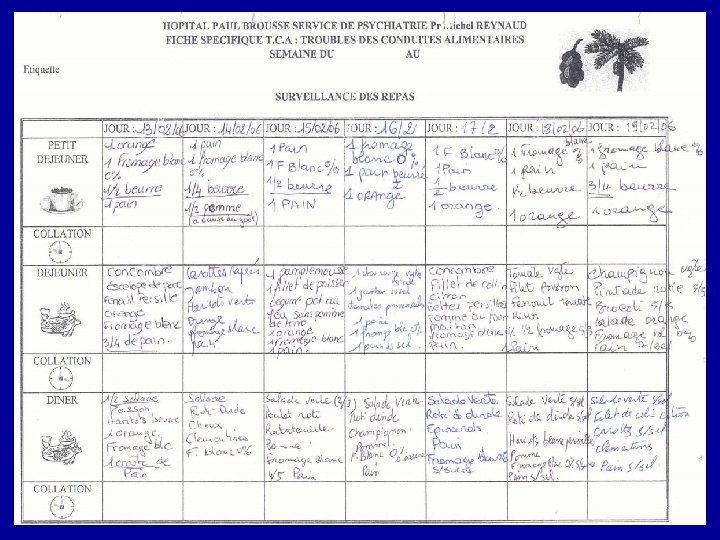 HOPITAL PAUL BROUSSE SERVICE DE PSYCHIATRIE Pr Michel REYNAUD
FICHE SPECIFIQUE T.C.A : TROUBLES DES CONDUITES ALIMENTAIRES
SEMAINE DU AU
Etiquette
SURVEILLANCE DES REPAS
JOUR : 13/02/06 JOUR : 14/02/06 JOUR : 15/02/06 JOUR : 16/2/ JOUR : 17/2 JOUR : 18/02/06 JOUR : 19/02/06
PETIT
DEJEUNER
1 orange
1 Fromage blanc
0%
1/2 beurre
1 pain
1 pain
1 fromage blanc
0%
1/4 beurre
1/2 pomme
(à cause du goût)
1 Pain
1 F Blanc 0/0
1/2 beurre
1 PAIN
1 fromage
blanc 0%
1 pain beurre
1 ORANGE
1 F. Blanc 0%
1 Pain
1/2 beurre
1 orange.
blanc
1 Fromage 0%
1 pain
1/2 beurre
1 orange
1 fromage blanc 0%
1 pain
3/4 beurre
1 orange
COLLATION
DEJEUNER
Concombre
Escalope de porc
Fenouil Persillé
Orange
Fromage blanc
3/4 de pain.
Carottes Rapées
Jambon
Haricots verts
Orange
Fromage blanc
pain
1 pamplemousse
1 filet de poisson
Légume pot au
feu sans pomme
de terre
1 orange
1 fromage blanc
1 pain.
tomates provençales
1 poire
Concombre
Filet de colin
citron
pomme au four
fromage blanc 0/0
pain.
Tomate Vgte
Filet
Fenouil
1/2 fromage
1 Pain
Champignon vgte
Pintade rotie s/s
Brocoli s/s
Salade orange
Fromage bl 0%
Pain
COLLATION
DINER
1/2 Salade
Poisson
Haricots beurre
1 orange
Fromage blc
1 croûte de
Pain
Salade
Roti Dinde
Choux
Clementines
F. blanc 0%
Salade verte
Poulet roti
Ratatouille
Fromage Blanc
4/5 Pain
Salade Verte
Roti dinde
Champignon
F. Blanc 0%
Pain
Salade Verte
Roti de dinde
Epinards
Pain
Fromage Blanc
s/sucre
Salade Verte s/sel
Roti de dinde s/sel
Pomme
Pain s/sel.
Salade verte s/sel
Filet de colin citron
carotts s/sel
clementines
Pain s/sel.
COLLATION